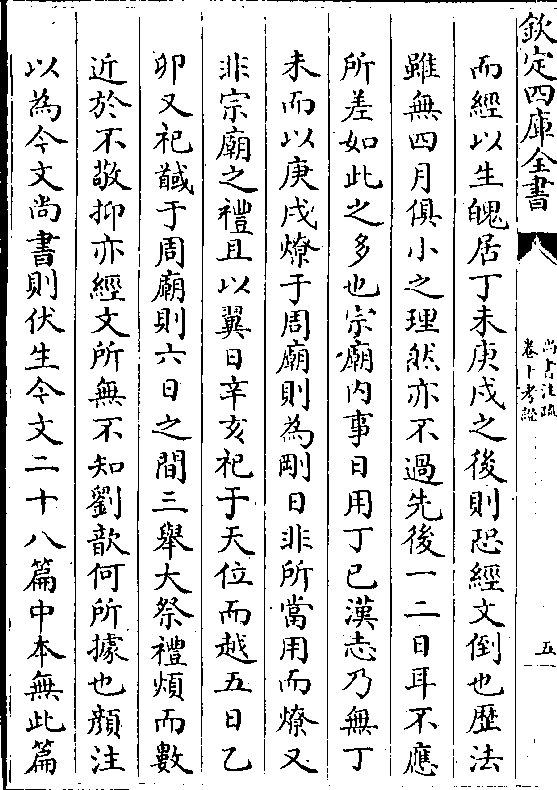 欽定四庫全書
尚書注疏
卷十考證
五
而經以生魄居丁未庚戌之後則恐經文倒也歴法
雖無四月俱小之理然亦不過先後一二日耳不應
所差如此之多也宗廟内事日用丁巳漢志乃無丁
未而以庚戌燎于周廟則為剛日非所當用而燎又
非宗廟之禮且以翼日辛亥祀于天位而越五日乙
卯又祀馘于周廟則六日之間三舉大祭禮煩而數
近於不敬抑亦經文所無不知劉歆何所據也顔注
以為今文尚書則伏生今文二十八篇中本無此篇